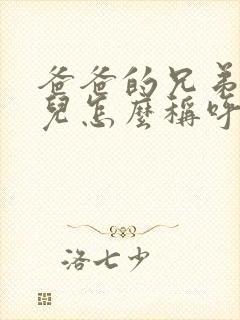 爸爸的兄弟
兒怎麼稱呼
洛七少